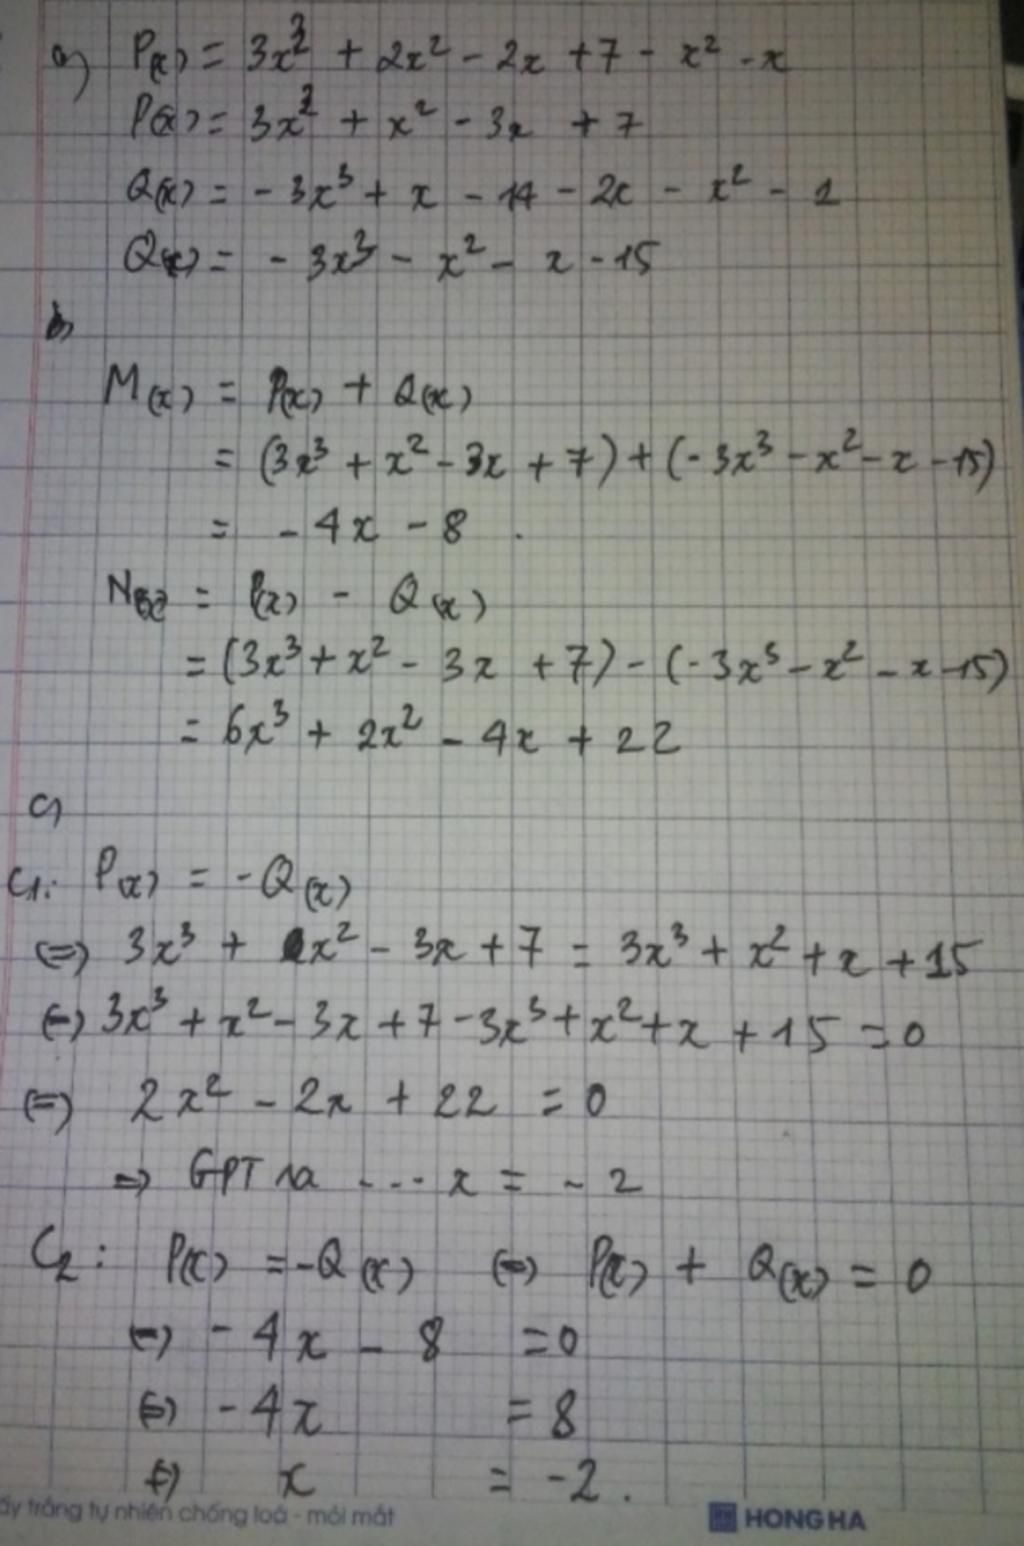 a) P(x) = 3x³ + 2x² - 2x + 7 - x² - x
P(x) = 3x³ + x² - 3x + 7
Q(x) = - 3x³ + x - 14 - 2x - x² - 1
Q(x) = - 3x³ - x² - x - 15
b)
M(x) = P(x) + Q(x)
= (3x³ + x² - 3x + 7) + (- 3x³ - x² - x - 15)
= - 4x - 8 .
N(x) = P(x) - Q(x)
= (3x³ + x² - 3x + 7) - (- 3x³ - x² - x - 15)
= 6x³ + 2x² - 4x + 22
c)
C1: P(x) = - Q(x)
(=) 3x³ + x² - 3x + 7 = 3x³ + x² + x + 15
(=) 3x³ + x² - 3x + 7 - 3x³ + x² + x + 15 = 0
(=) 2x² - 2x + 22 = 0
=> GPT ra ... x = - 2
C2: P(x) = - Q(x) (=) P(x) + Q(x) = 0
(=) - 4x - 8 = 0
(=) - 4x = 8
(=) x = - 2 .
ấy trắng tự nhiên chống loá - mỏi mắt HONG HA